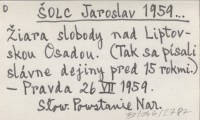 D
ŠOLC Jaroslav 1959...
Žiara slobody nad Liptov-
skou Osadou. (Tak sa písali
slávne dejiny pred 15 rokmi.)
— Pravda 26 VII 1959.
Slov. Powstanie Nar.